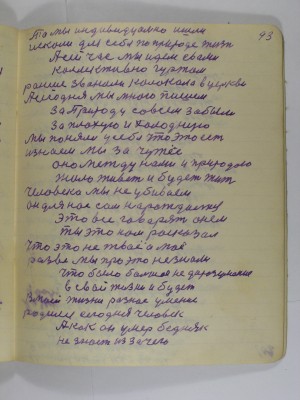 93
То мы индивидуально ишли
искали для себя по природе жизн
А сейчас мы идем сваим
коллективно гуртом
раньше звонили колокола в церкви
А сегодня мы много пишем
За Природу совсем забыли
За плохую и холодную
мы поняли у себя это это ест
изнаем мы за чужое
оно между нами и природою
жило живет и будет жит
Человека мы не убиваем
он для нас сам нарождался
Это все говорят онем
ты это нам рассказал
Что это не твае а мое
разве мы про это незнаем
что было болное недоразумения
в свой жизни и будет
в моей жизни разное умение
родился сегодня человек
А как он умер бедняк
не знает из за чего